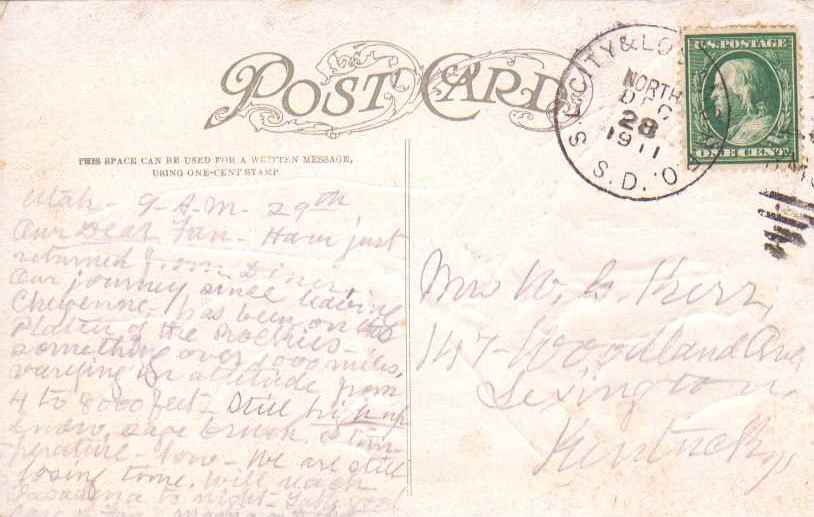 POST CARD
THIS SPACE CAN BE USED FOR A WRITTEN MESSAGE,
USING ONE-CENT STAMP
S.L. CITY & LO
NORTH
DEC
28
1911
S.D.
U.S. POSTAGE
ONE CENT
Utah - 9-A-M- 29th
Our Dear Fan - Have just
returned from Diner.
Our journey since leaving
Cheyenne - has been on
Plateau of the Rockies -
something over 1000 miles,
varying in altitude from
4 to 8000 feet - Still high up
snow, sage brush, & tem-
perature - low - We are still
losing time. Will reach
Pasadena to night -
Mrs W. G. Kerr,
147 - Woodland Ave
Lexington,
Kentucky,